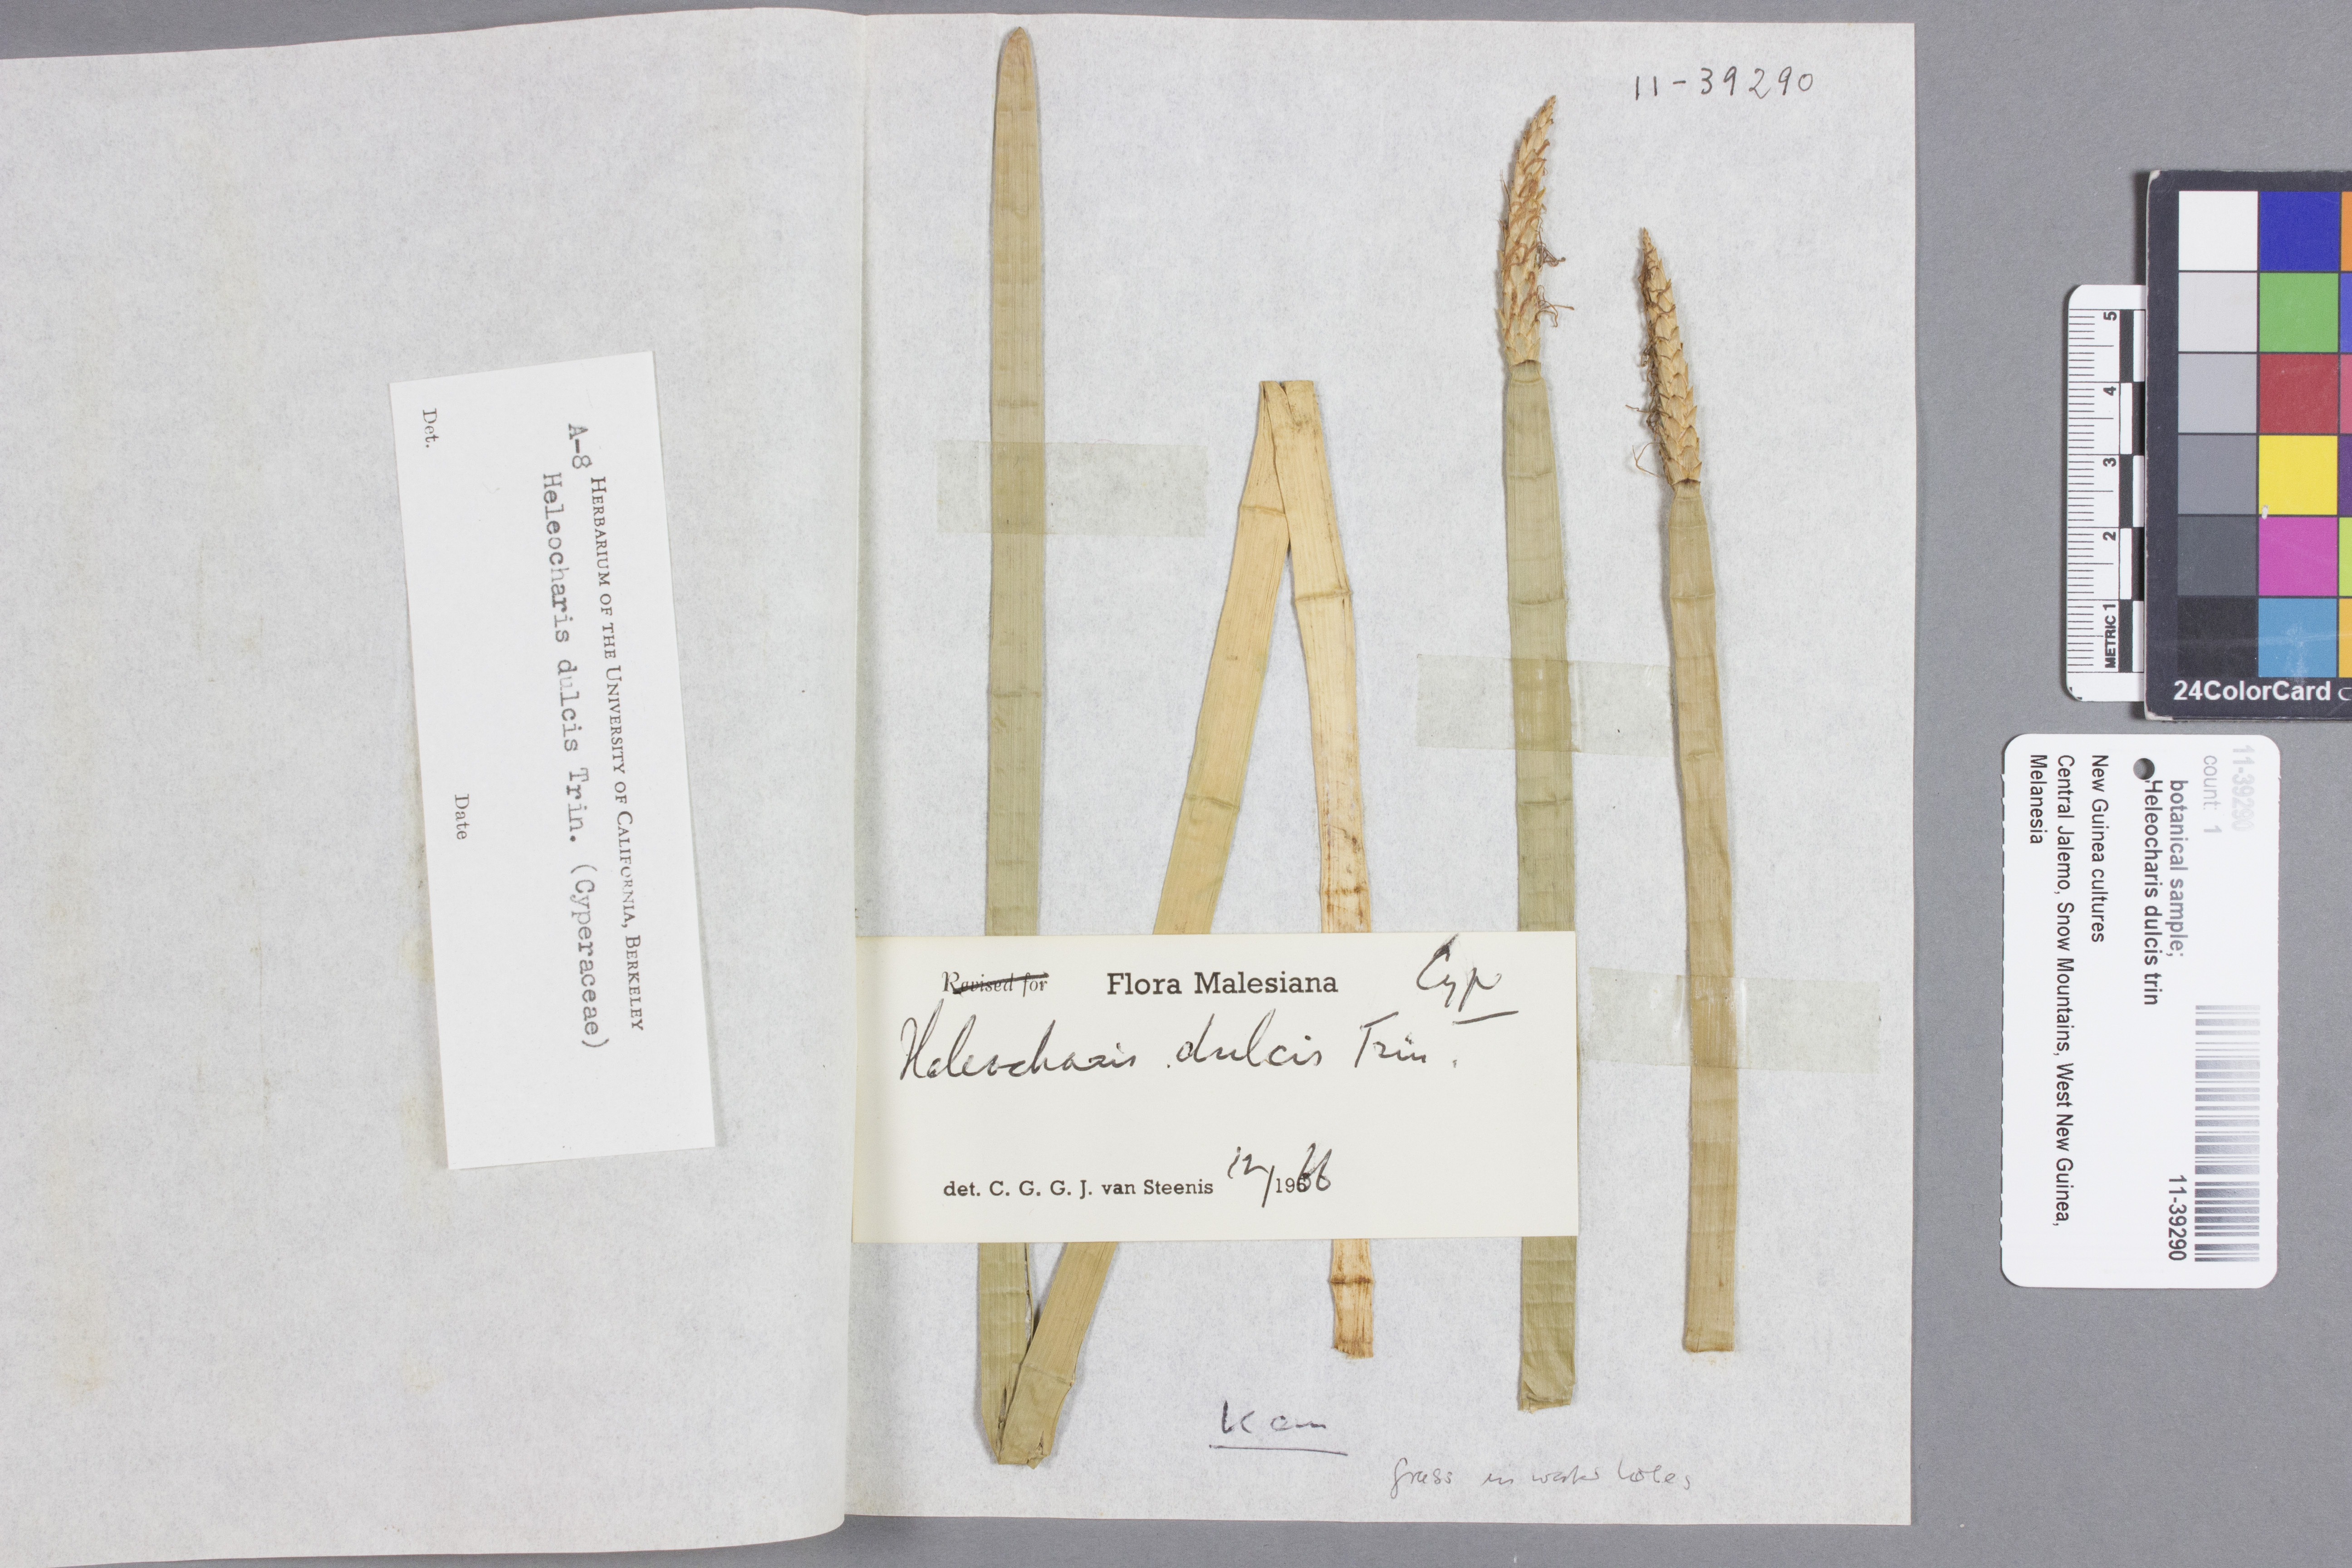 11-39290
HERBARIUM OF THE UNIVERSITY OF CALIFORNIA, BERKELEY
A-8
Heleocharis dulcis Trin. (Cyperaceae)
Det. Date
Revised for Flora Malesiana Cyp
Heleocharis dulcis Trin.
det. C. G. G. J. van Steenis 12/1966
Kam
grass in water holes
5
4
3
2
METRIC 1
24ColorCard
11-39290
count: 1
botanical sample;
Heleocharis dulcis trin
New Guinea cultures
Central Jalemo, Snow Mountains, West New Guinea,
Melanesia
11-39290